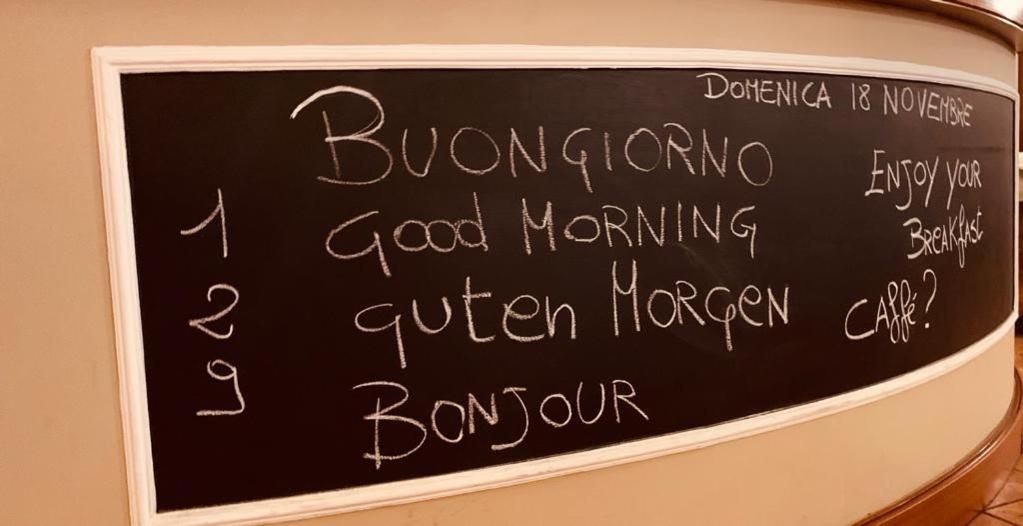 DOMENICA 18 NOVEMBRE
BUONGIORNO
1 Good MORNING
2 guten MORGEN
9 BONJOUR
ENJOY YOUR
BREAKfast
CAffé?